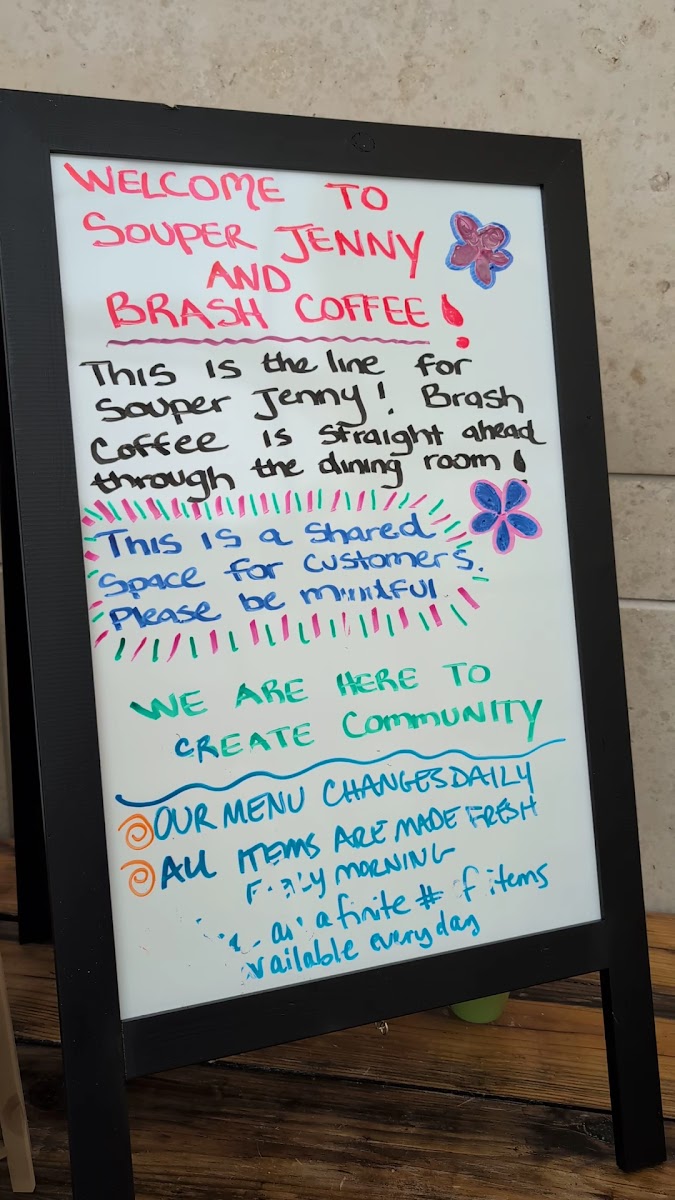 WELCOME TO
SOUPER JENNY
AND
BRASH COFFEE!
This is the line for
Souper Jenny! Brash
Coffee is straight ahead
through the dining room!
This is a shared
space for customers.
Please be mindful
WE ARE HERE TO
CREATE COMMUNITY
OUR MENU CHANGES DAILY
ALL ITEMS ARE MADE FRESH
MORNING
a finite # of items
available every day